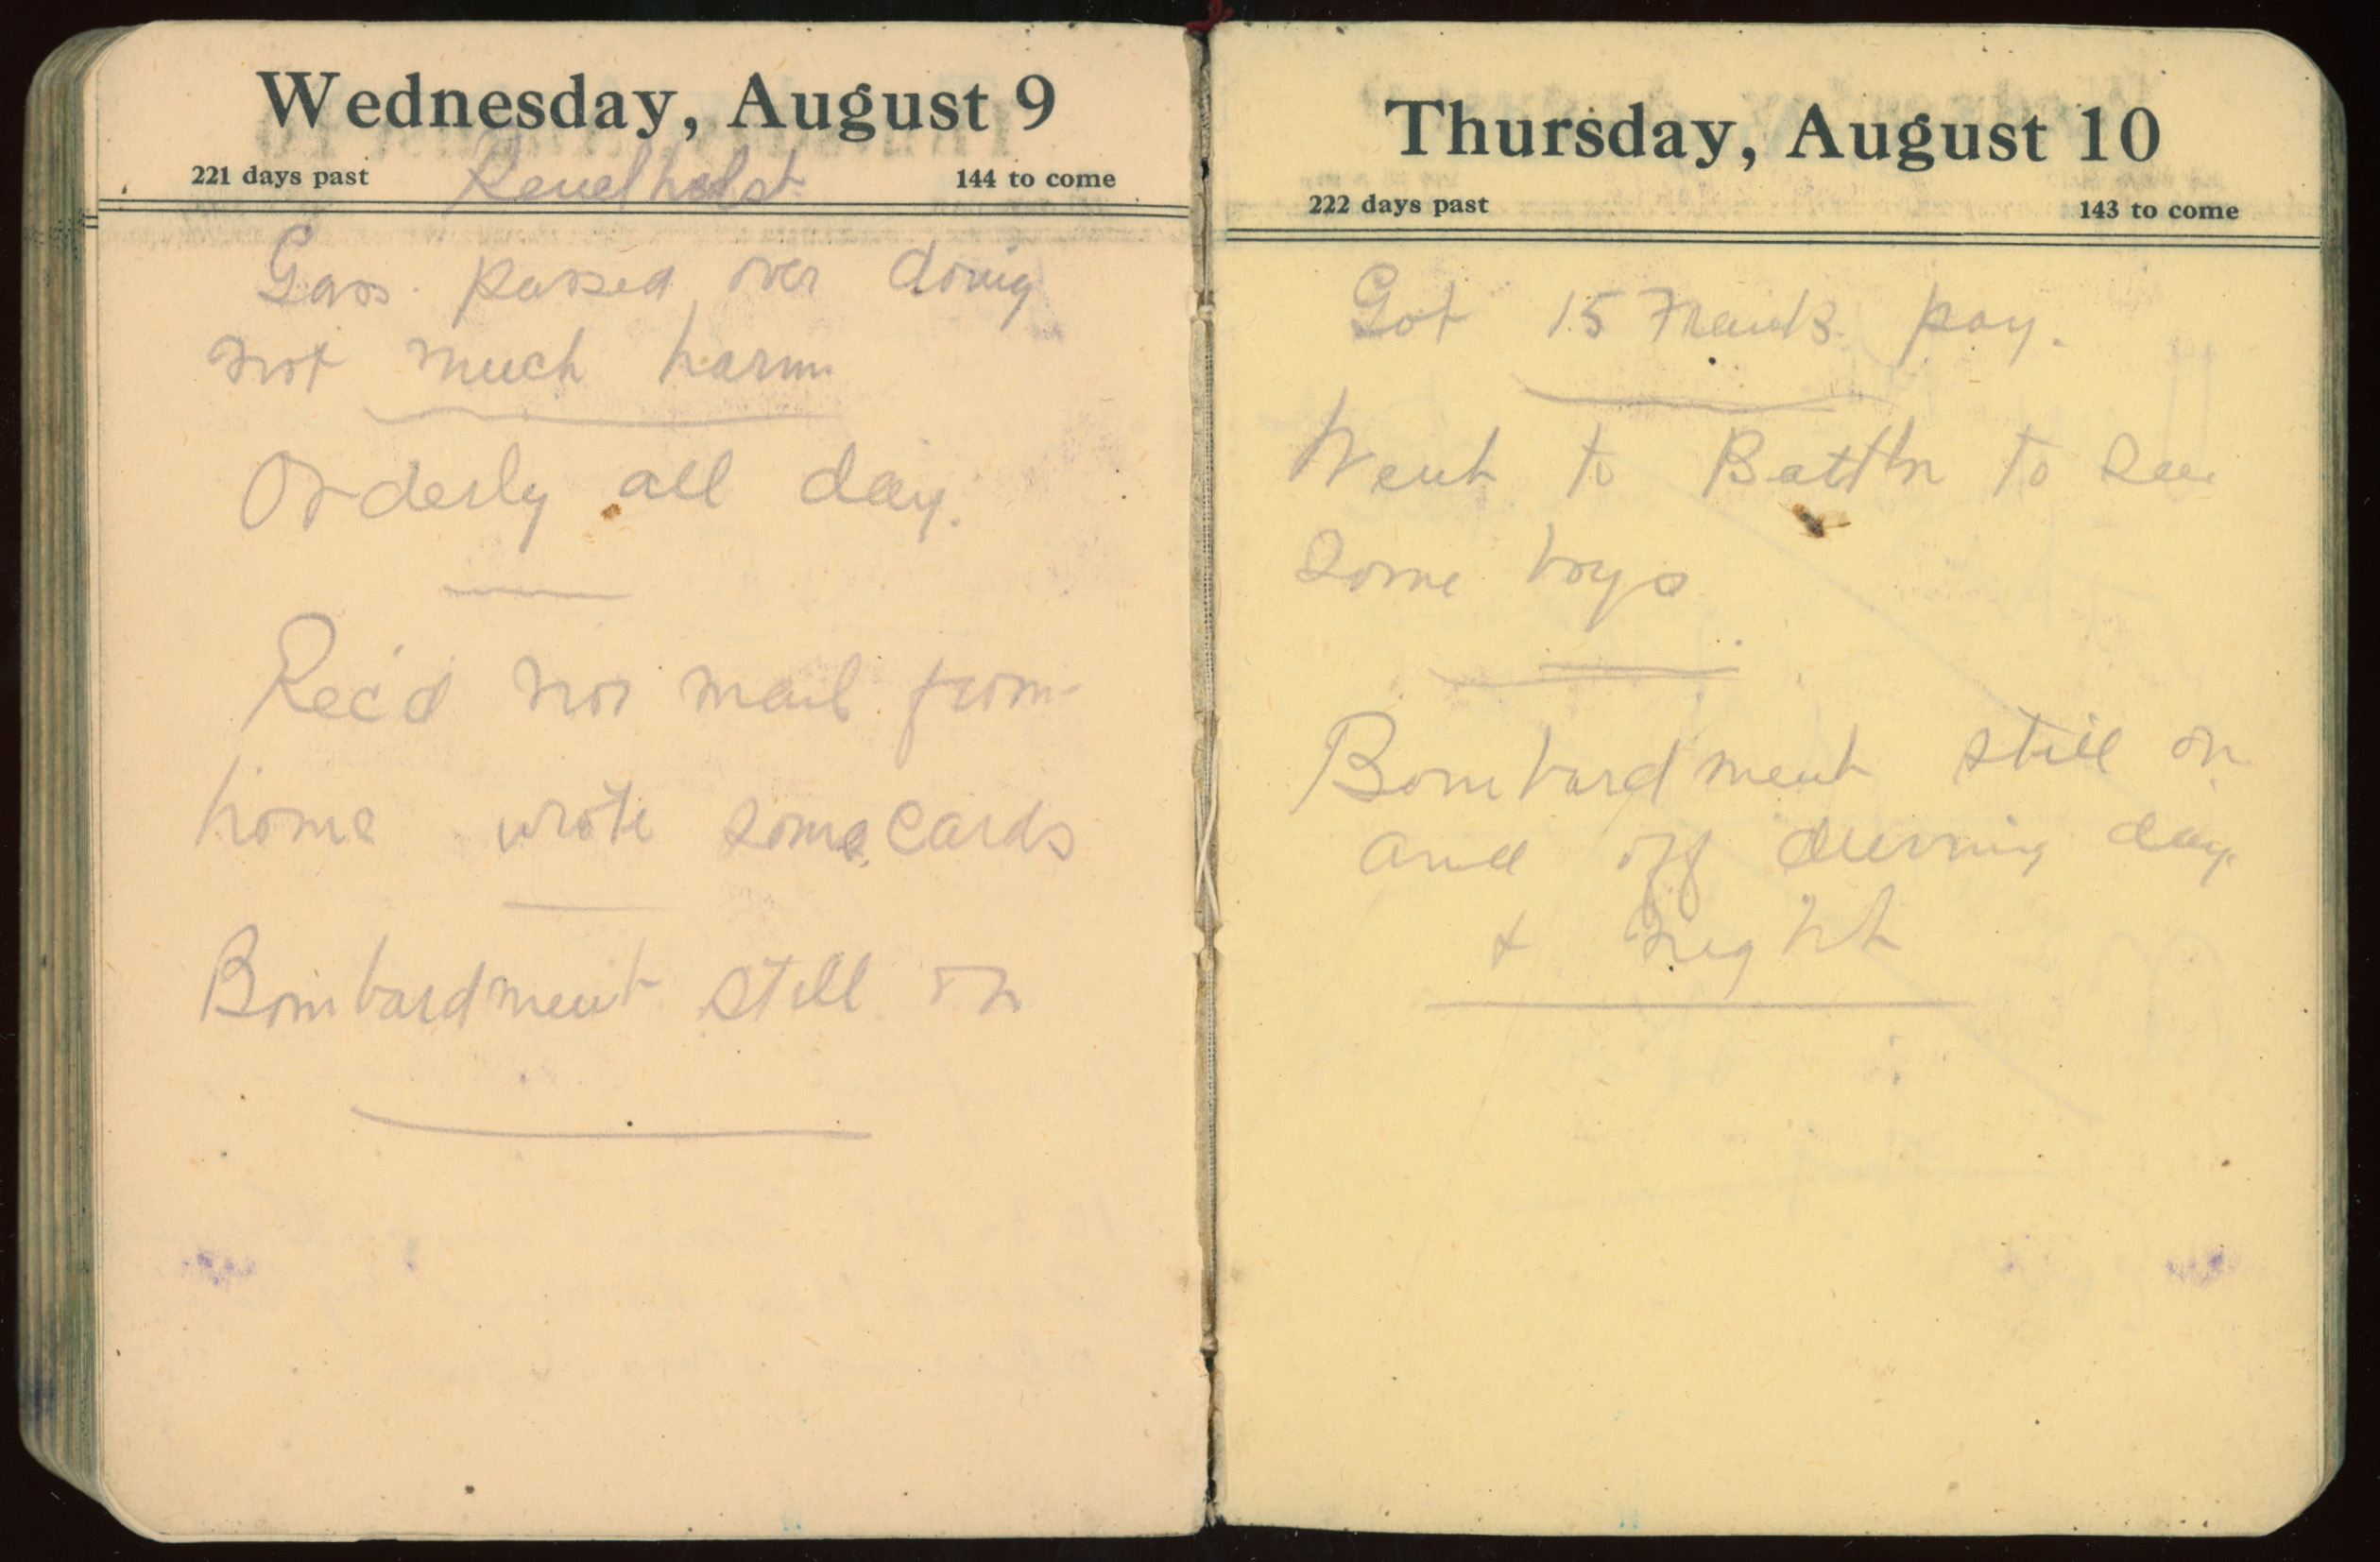 Wednesday, August 9
221 days past Renelholst 144 to come
Gass passed over doing
not much harm
Orderly all day.
Rec'd no mail from
home wrote some cards
Bombardment still on
Thursday, August 10
222 days past 143 to come
Got 15 Franks pay.
Went to Battln to see
some boys
Bombardment still on
and off durring day
& night